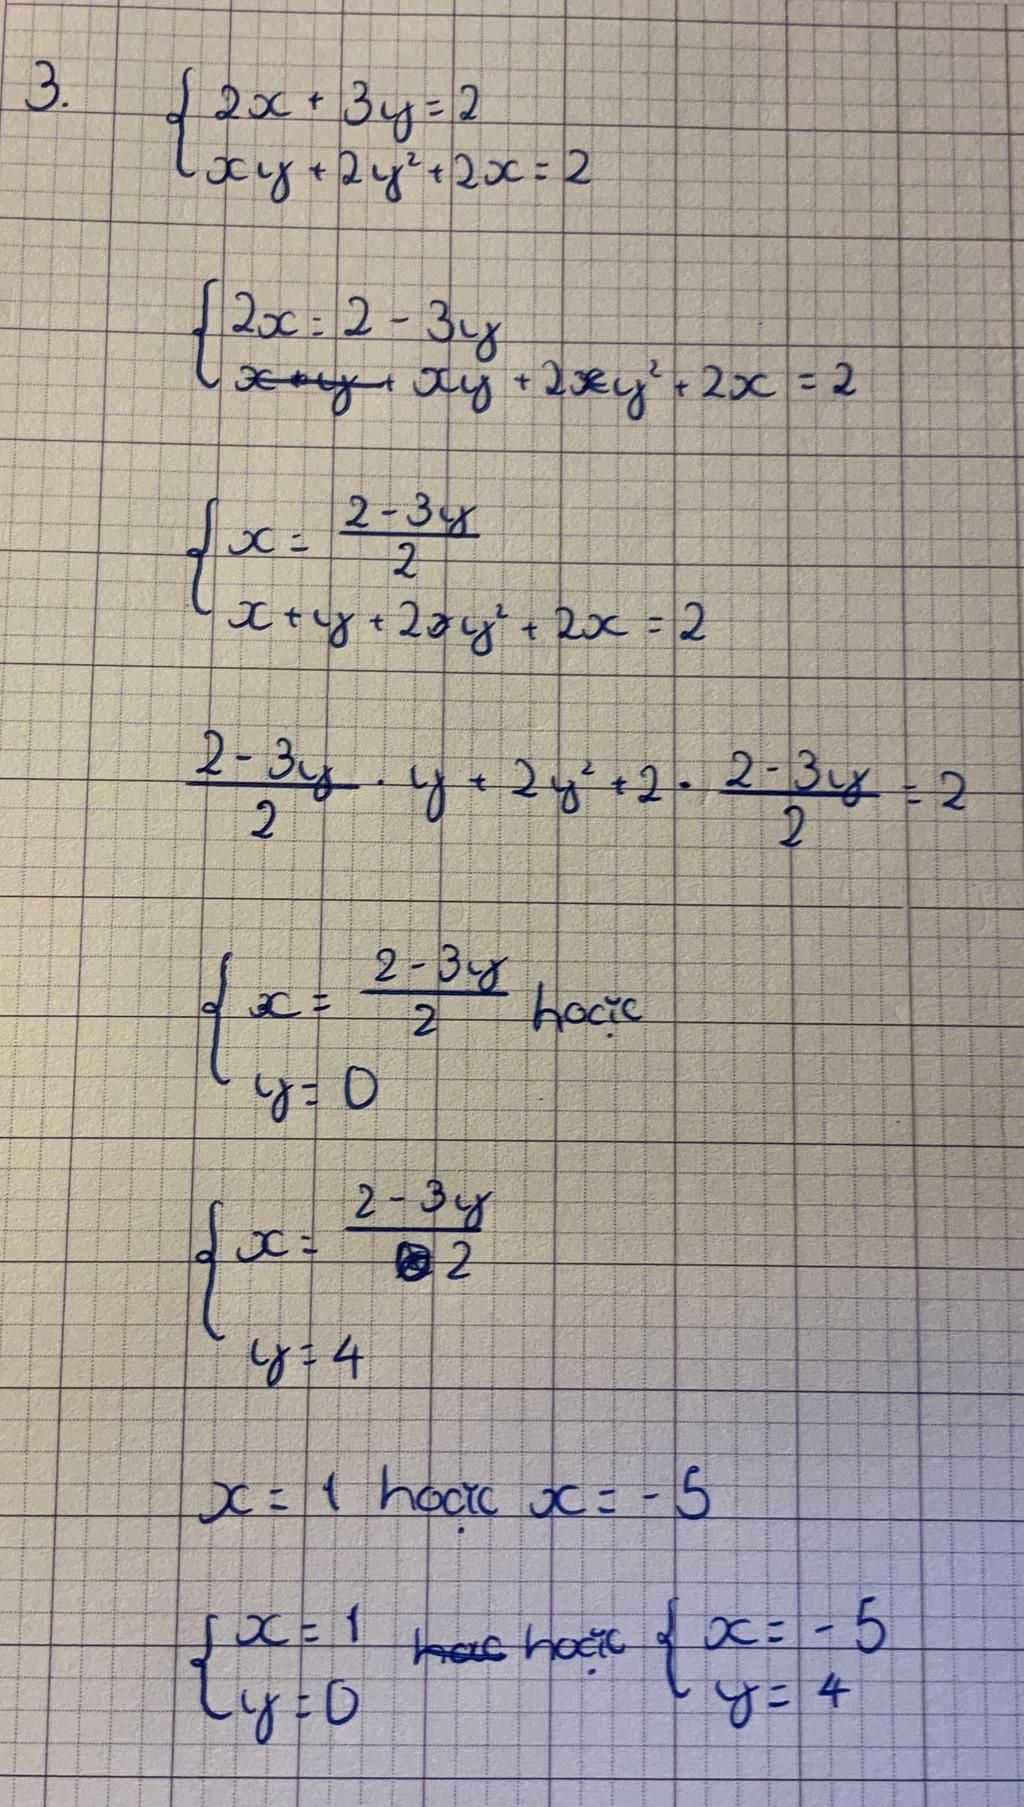 3.
{ 2x + 3y = 2
xy + 2y² + 2x = 2
{ 2x = 2 - 3y
x + y + xy + 2xy² + 2x = 2
{ x = (2 - 3y)/2
x + y + 2xy² + 2x = 2
(2 - 3y)/2 . y + 2y² + 2 . (2 - 3y)/2 = 2
{ x = (2 - 3y)/2 hoặc
y = 0
{ x = (2 - 3y)/2
y = 4
x = 1 hoặc x = - 5
{ x = 1 hac hoặc { x = - 5
y = 0 y = 4